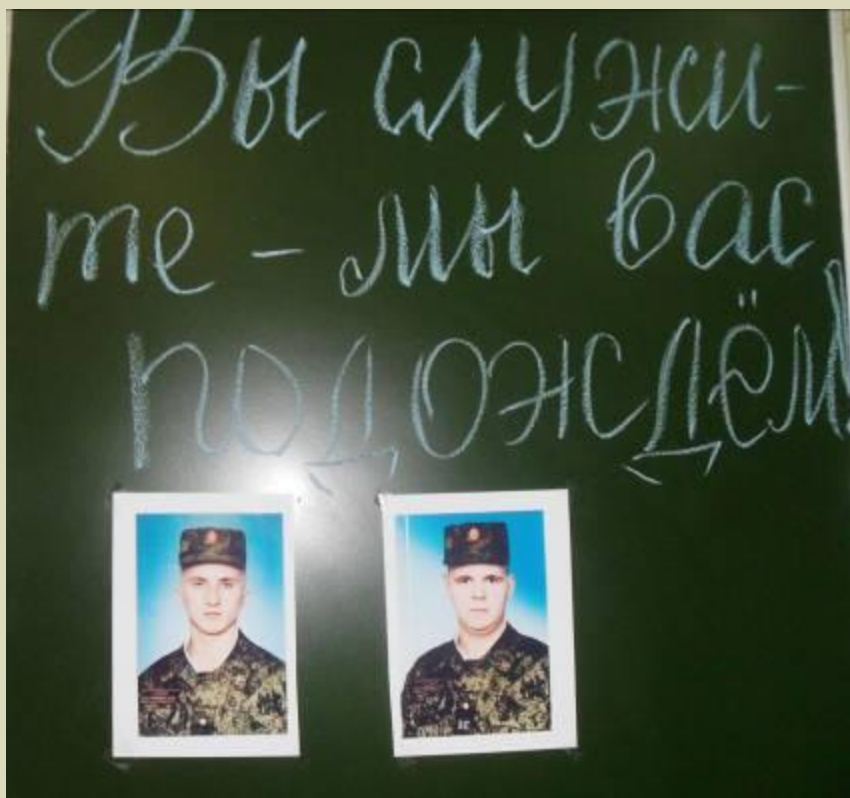 Вы служи-
те - мы вас
подождём!